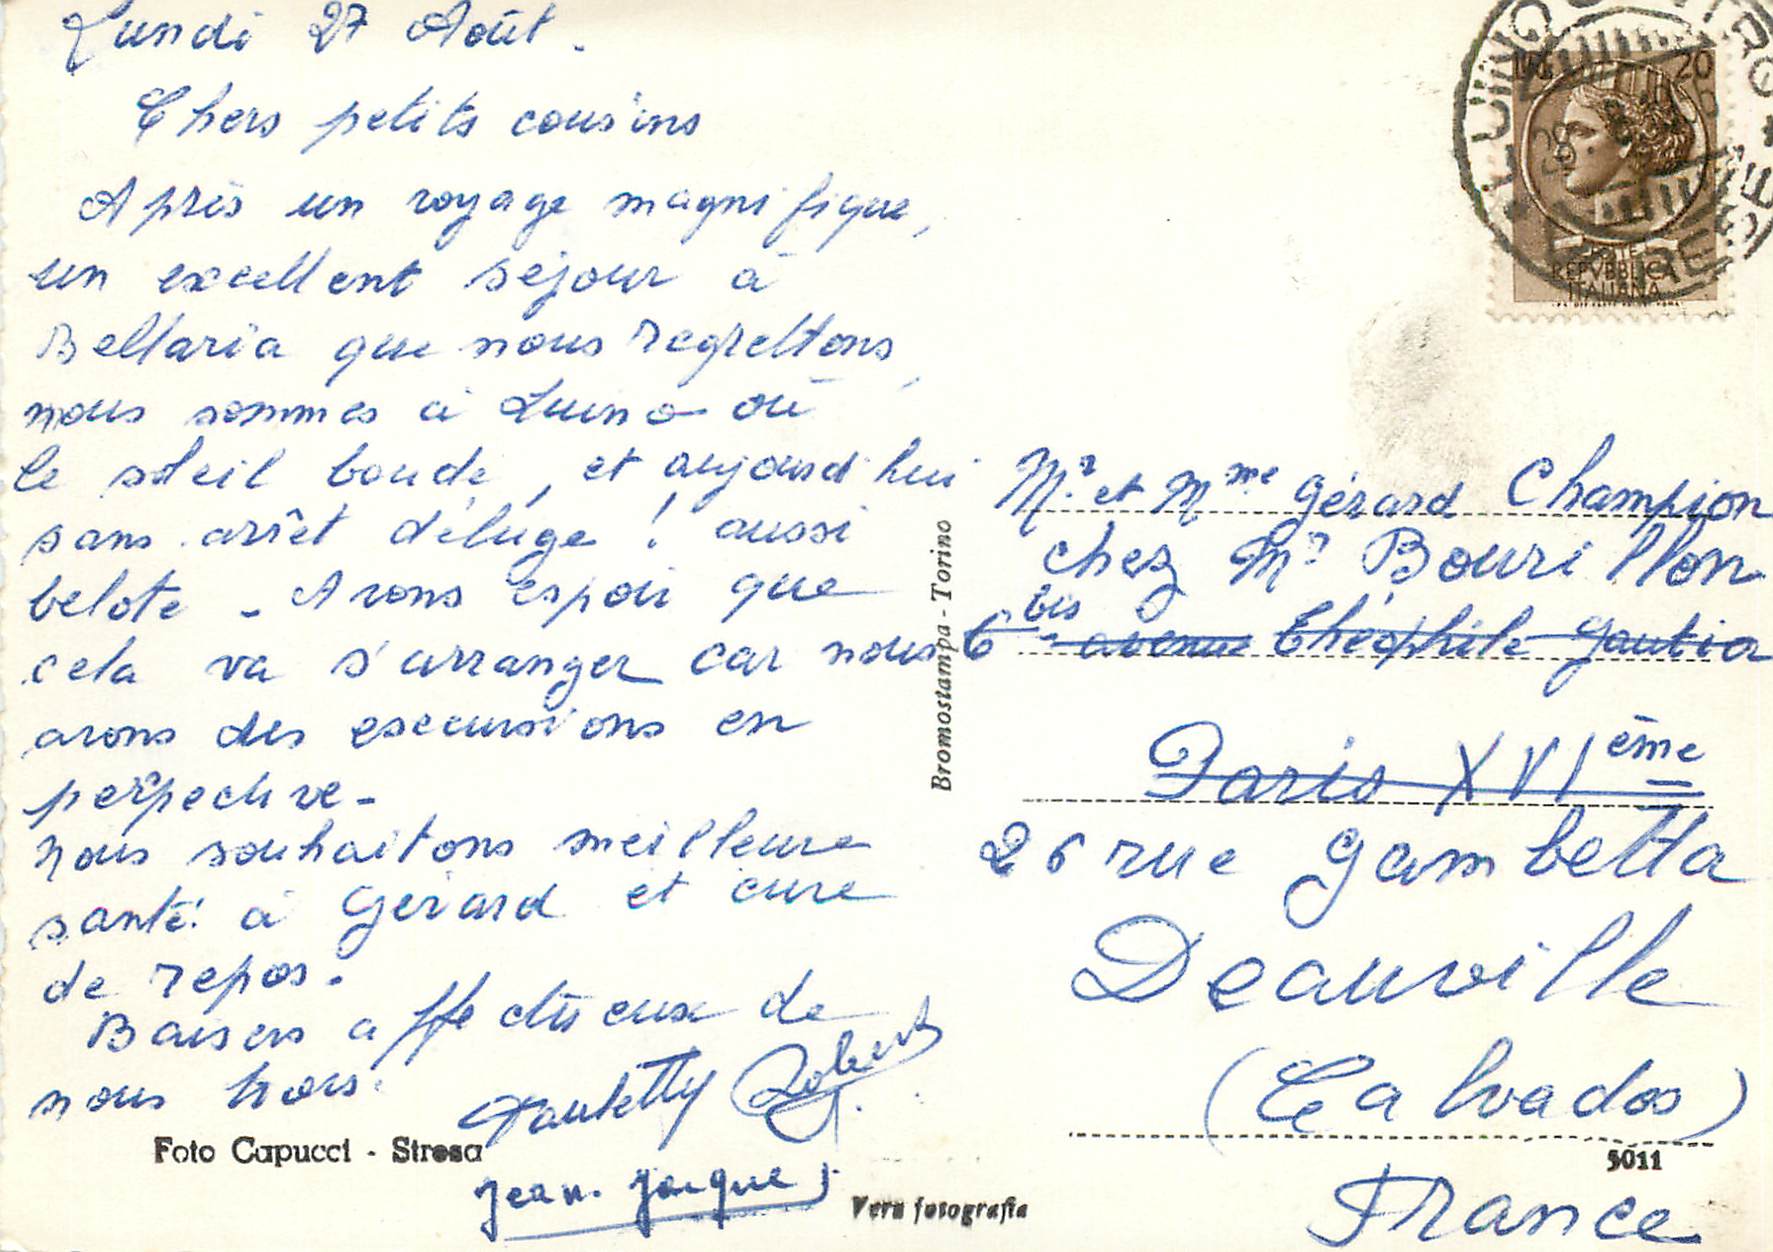 Lundi 27 Août.
Chers petits cousins
Après un voyage magnifique,
un excellent séjour à
Bellaria que nous regrettons,
nous sommes à Luino où
le soleil boude, et aujourd'hui
sans arrêt déluge ! aussi
belote - Avons espoir que
cela va s'arranger car nous
avons des excursions en
perspective -
Nous souhaitons meilleure
santé à Gérard et cure
de repos.
Baisers affectueux de
nous trois.
Pauletty Robert
Jean-Jacques
Foto Capucci - Stresa
Vera fotografia
Bromostampa - Torino
LUINO
20
POSTE
REPVBBLICA
ITALIANA
Mr et Mme Gérard Champion
chez Mr Bourillon
6 bis avenue Théophile Gautier
Paris XVIème
26 rue Gambetta
Deauville
(Calvados)
5011
France